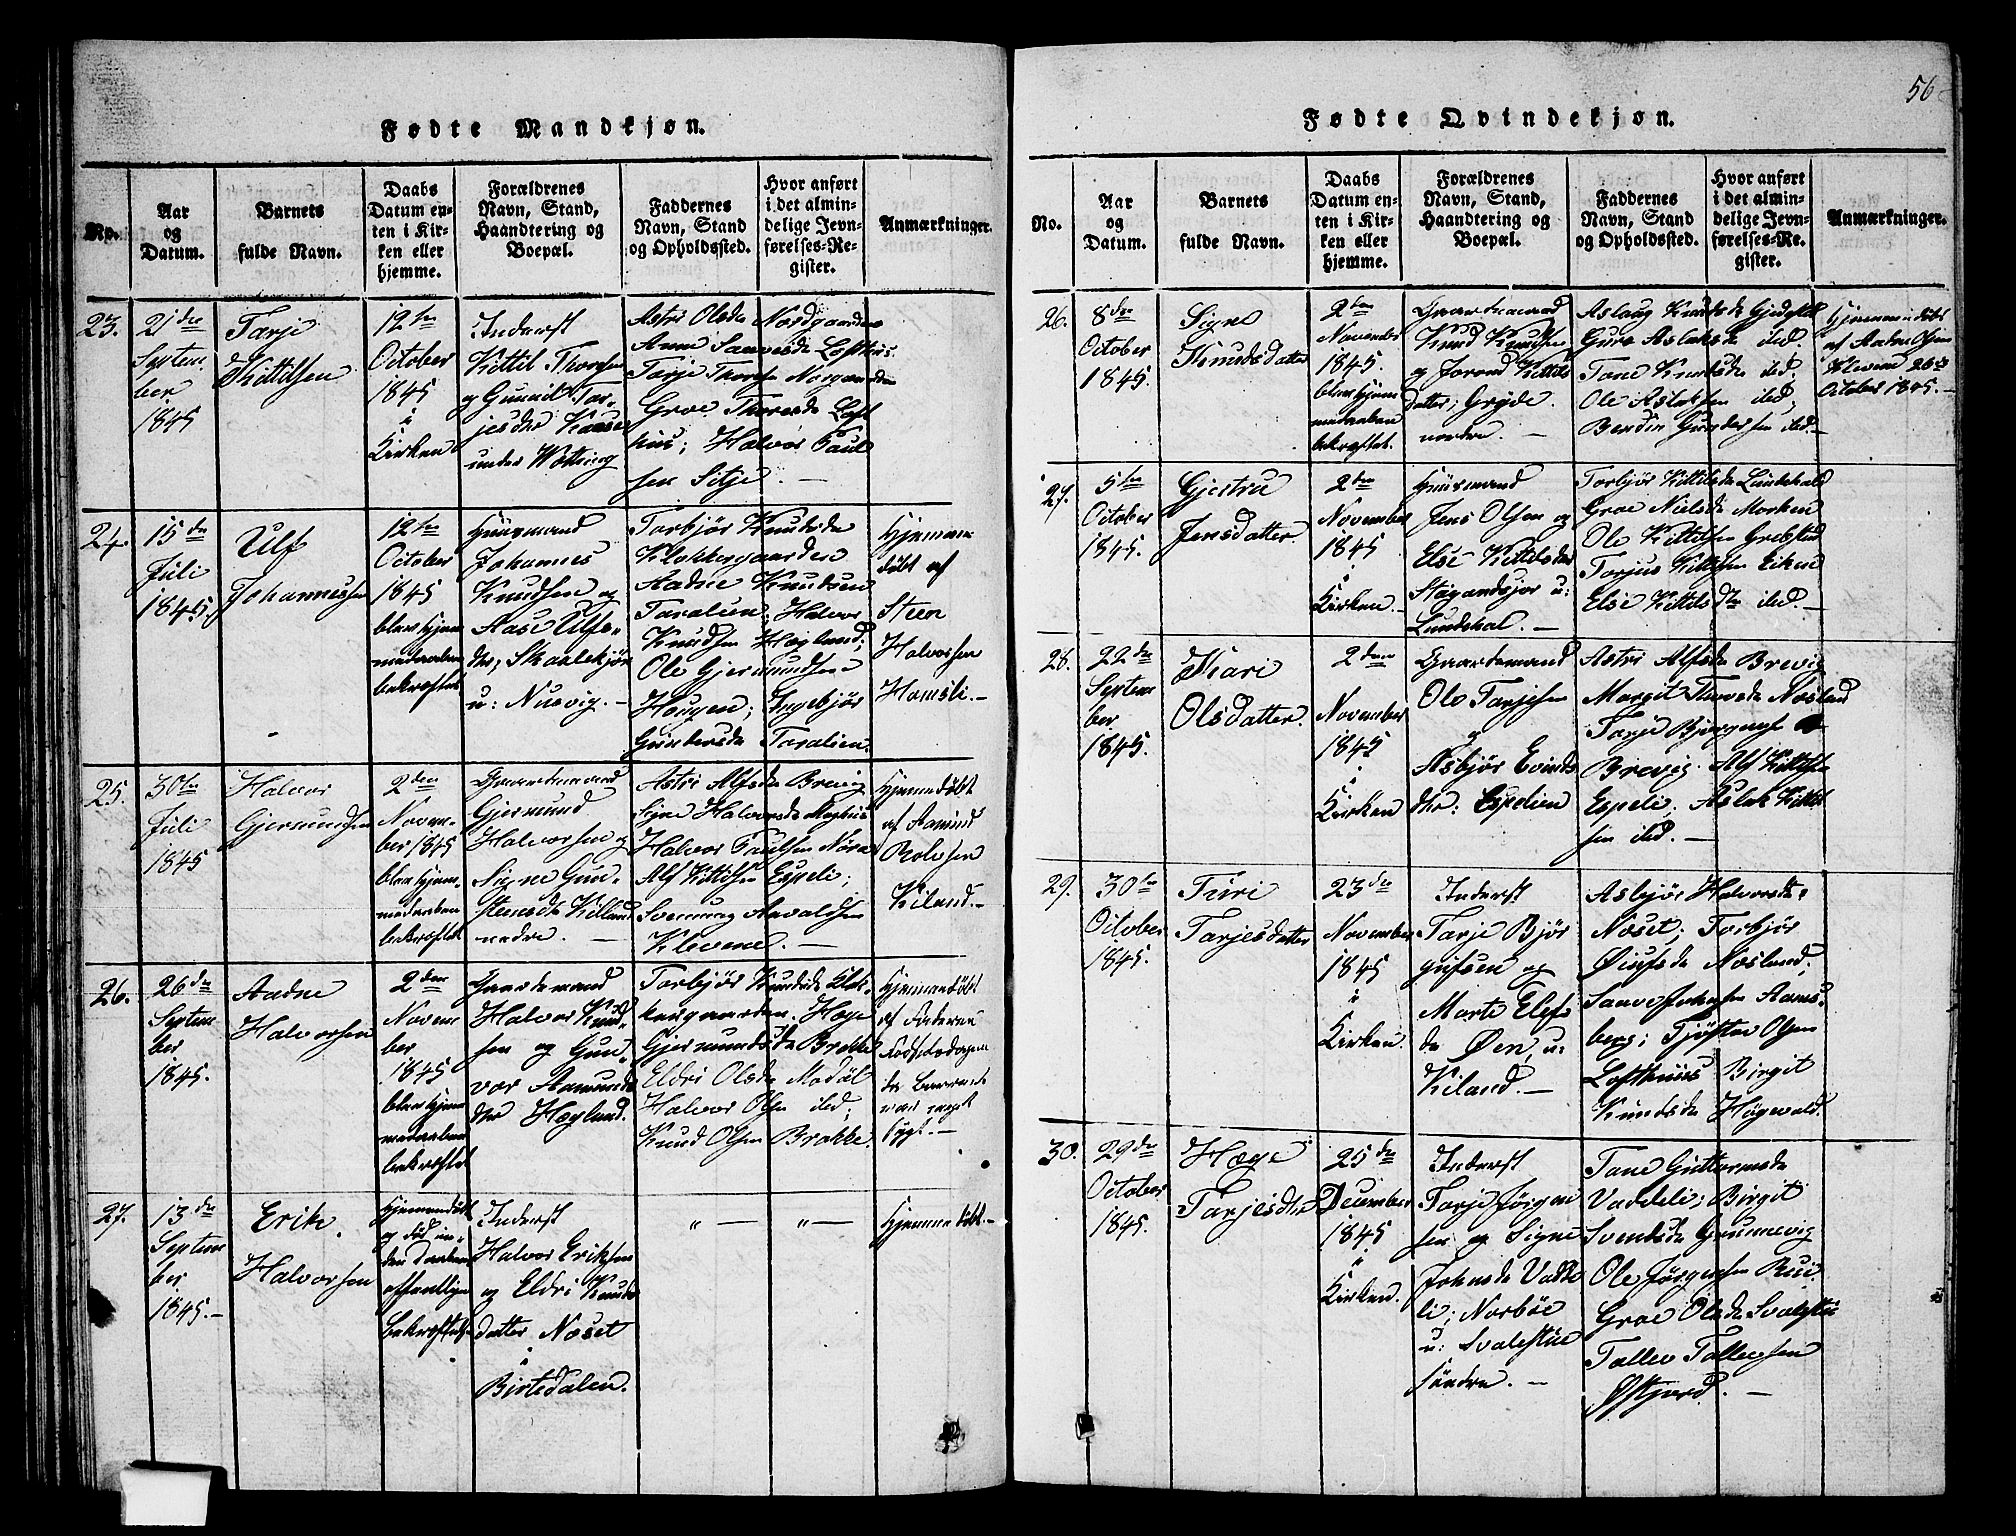 56
Fødte Mandkjøn.
No.
Aar
og
Datum.
Barnets
fulde Navn.
Daabs
Datum en-
ten i Kir-
ken eller
hjemme.
Forældrenes
Navn, Stand,
Haandtering og
Boepæl.
Faddernes
Navn, Stand
og Opholdssted.
Hvor anført
i det almin-
delige Jevn-
førelses-Re-
gister.
Anmærkninger.
23.
21de
Septem-
ber
1845
Tarje
Kittilsen
12te
October
1845
i
Kirken
Inderst
Kittil Thorsen
og Gunild Tar-
jesdtr
under
Astri Olsdr Nordgaarden
Anne Saavesdr Lofthus
Tarje Thorsen Norgaarden
Groe Thoresdr Loft
huus; Halvor Paul
sen Sitje. —
24.
15de
Juli
1845.
Ulf
Johannessen
12te
October
1845
blev hjem-
medaaben
bekræftet
Huusmand
Johannes
Knudsen og
Aase Ulfs-
dtr, Skarlekjør
u: Nusvig. —
Torbjør Knudsdr
Klokkergaarden
Aadne Knudsen
Taralien; Halvor
Knudsen Høgland;
Ole Gjermundsen
Hougen; Ingebjør
Gundersdr Taralien.
Hjemme
døbt af
Steen
Halvorsen
Homsli. —
25.
30te
Juli
1845
Halvor
Gjermundsen
2den
Novem-
ber 1845
blev hjem-
medaaben
bekræftet
Gaardmand
Gjermund
Halvorsen og
Signe Gun-
stensdr Kiland
nedre. —
Astri Alfsdr Brevig
Signe Halvorsdr
Halvor Paulsen
Alf Kittilsen Espeli;
Svennung Aavaldsen
Klevene. —
Hjemmedøbt
af Aamund
Rolvsen
Kiland. —
26.
26de
Septem
ber
1845.
Aadne
Halvorsen
2den
Novem
ber
1845
blev hjem
medaaben
bekræftet
Gaardemand
Halvor Knud-
sen og Gun-
vor Aamunds
dtr Høgland.
Torbjør Knudsdr Klok-
kergaarden. Høge
Gjermundsdr Brokke
Eldri Olsdr Modal
Halvor Olsen ibd;
Knud Olsen Brokke.
Hjemmedøbt
af Faderen
Fødselsdagen
da Barnet
var meget
sygt. —
27.
13de
Septem
ber
1845. —
Erik.
Halvorsen
Hjemmedøbt
og død in-
den Daabens
offentlige
Bekræftelse
Inderst
Halvor Eriksen
og Eldri Knuds
datter Noset
i
Birtedalen.
" — " —
Hjemme døbt. —
Fødte Qvindekjøn.
No.
Aar
og
Datum.
Barnets
fulde Navn.
Daabs
Datum en-
ten i Kir-
ken eller
hjemme.
Forældrenes
Navn, Stand,
Haandtering og
Boepæl.
Faddernes
Navn, Stand
og Opholdssted.
Hvor anført
i det almin-
delige Jevn-
førelses-Re-
gister.
Anmærkninger.
26.
8de
October
1845.
Signe
Knudsdatter
2den
November
1845.
blev hjem
medaaben
bekræftet.
Gaardemand
Knud Knudsen
og Jorand Kittils
datter; Gryde
nordre. —
Aslaug Knudsdr
Guro Aslaksdr ibd.
Tone Knudsdr ibd.
Ole Aslaksen ibd;
Bendix Gundersen ibd. —
Hjemmedøbt
af Aadne Olsen
Klevene 26de
October 1845. —
27.
5te
October
1845.
Gjestru
Jensdatter.
2den
November
1845
i
Kirken. —
Huusmand
Jens Olsen og
Else Kittilsdr
Støgandsjor u:
Lundehal. —
Torbjør Kittilsdr Lundehald
Groe Nielsdr Morken
Ole Kittilsen
Torjus Kittilsen Eiken
Else Kittilsdtr ibd. —
28.
22de
Septem
ber
1845.
Kari
Olsdatter.
2den
November
1845
i
Kirken
Gaardemand
Ole Tarjesen
og
Asbjør Evinds
dtr: Espelien
Astri Alfsdr Brevig
Margit Noesland
Tarje
Brevig. Alf Kittilsen
Espeli; Aslak Kittil
sen ibd. —
29.
30te
October
1845.
Turi
Tarjesdatter
23de
November
1845
i
Kirken.
Inderst
Tarje Bjør
gufsen og
Marte Elefs
dr Øen, u:
Kiland. —
Asbjør Halvorsdtr
Noset; Torbjør
Øiufsdr Nosland;
Saave Johnsen Aams-
berg; Tjøsten Olsen
Lofthuus Birgit
Knudsdr Høgevold.
30.
29de
October
1845.
Høge
Tarjesdtr
25de
December
1845
i
Kirken.
Inderst
Tarje Jørgen
sen og Signe
Johnsdr Vadde
li; Norbøe
u: Svalestue
søndre. —
Tone Guttormsdr
Vaddeli; Birgit
Svendsdr Grunnevig
Ole Jørgensen Rui.
Groe Olsdr Svalestue
Tallev Tallevsen
Østjord. —